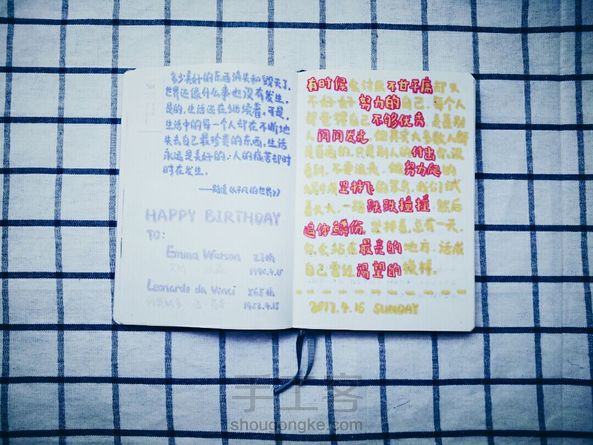 多少美好的东西消失和毁灭了,
世界还像什么事也没有发生。
是的,生活还在继续着。可是,
生活中的每一个人却在不断地
失去自己最珍贵的东西。生活
永远是美好的;人的痛苦却时
时在发生。
——路遥《平凡的世界》
HAPPY BIRTHDAY
TO:
Emma Watson 27th
1990.4.15
Leonardo da Vinci 565th
1452.4.15
有时候 不甘平庸却又
不好好努力的自己,每个人
都觉得自己不够优秀,
闪闪发光,但其实大多数人都
是普通的,只是别人的付出你没
看到。 努力爬的
坚持飞的 我们
一路跌跌撞撞,然后
遍体鳞伤。坚持着,总有一天,
你会站在最亮的地方,活成
自己曾经渴望的模样。
2017.4.16 SUNDAY
手工客
shougongke.com